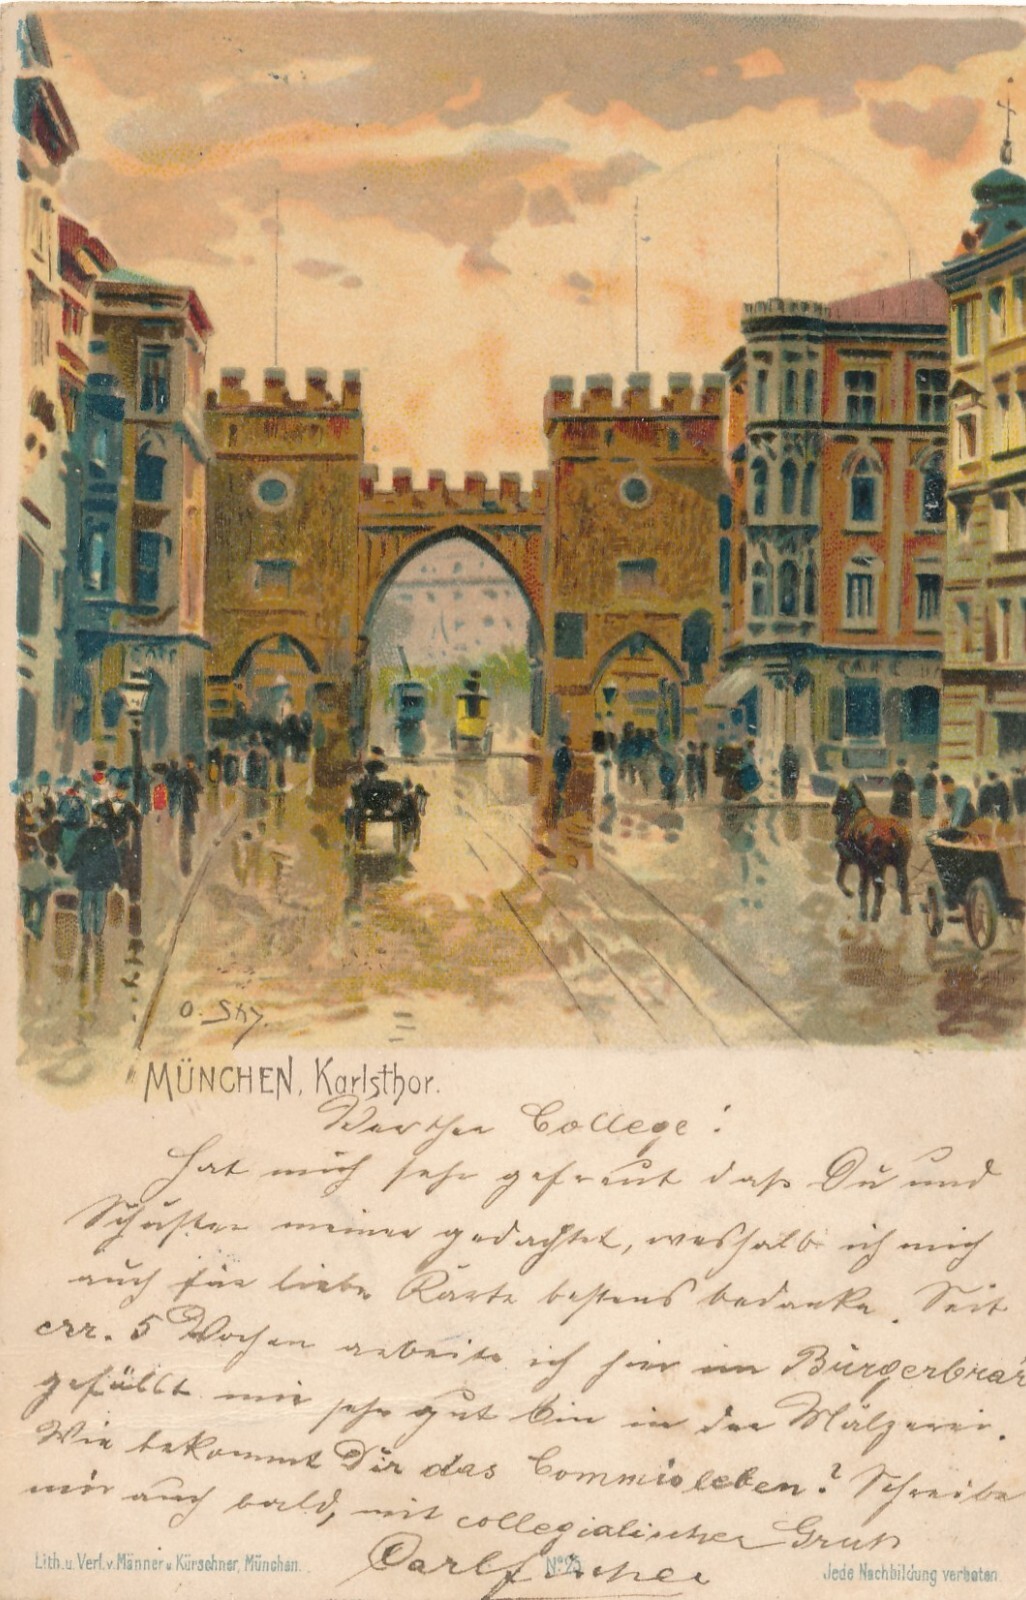 O. Sky.
MÜNCHEN, Karlsthor.
Werther College!
Hat mich sehr gefreut daß Du und
Schuster meiner gedachtet, weshalb ich mich
auch für liebe Karte bestens bedanke. Seit
crr. 5 Wochen arbeite ich hier im Bürgerbräu
gefällt mir sehr gut bin in der Mälzerei.
Wie bekommt Dir das Commisleben? Schreibe
mir auch bald, mit collegialischer Gruß
Carl Fischer
Lith. u. Verl. v. Männer u. Kürschner, München.
No 25
Jede Nachbildung verboten